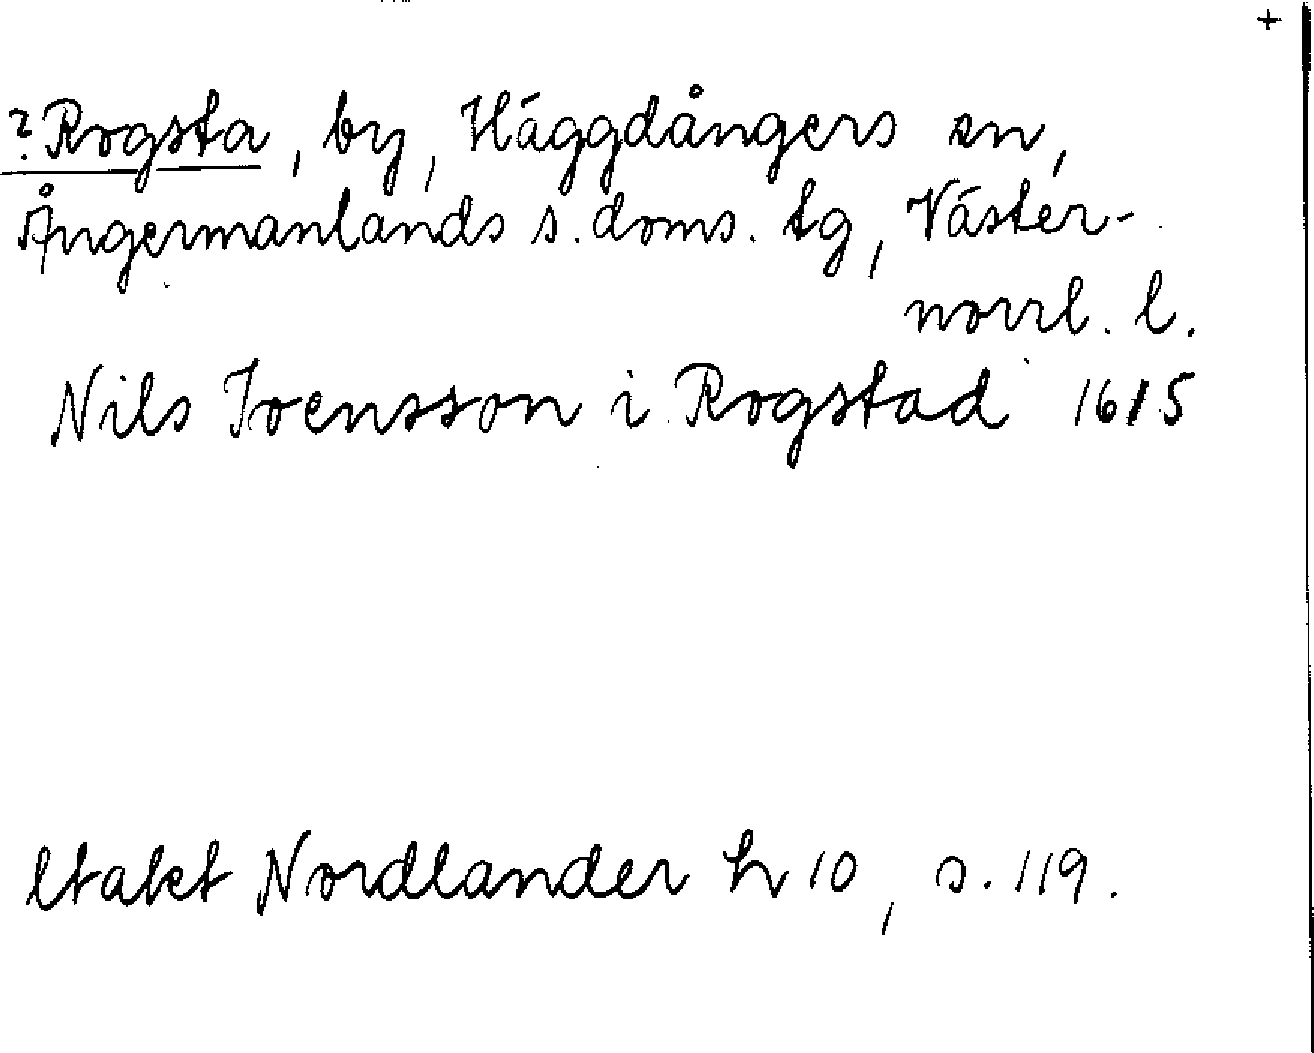 +
? Rogsta, by, Häggdångers sn,
Ångermanlands s. doms. tg, Väster-
norrl. l.
Nils Joensson i Rogstad 1615
Nordlander h 10, s. 119.